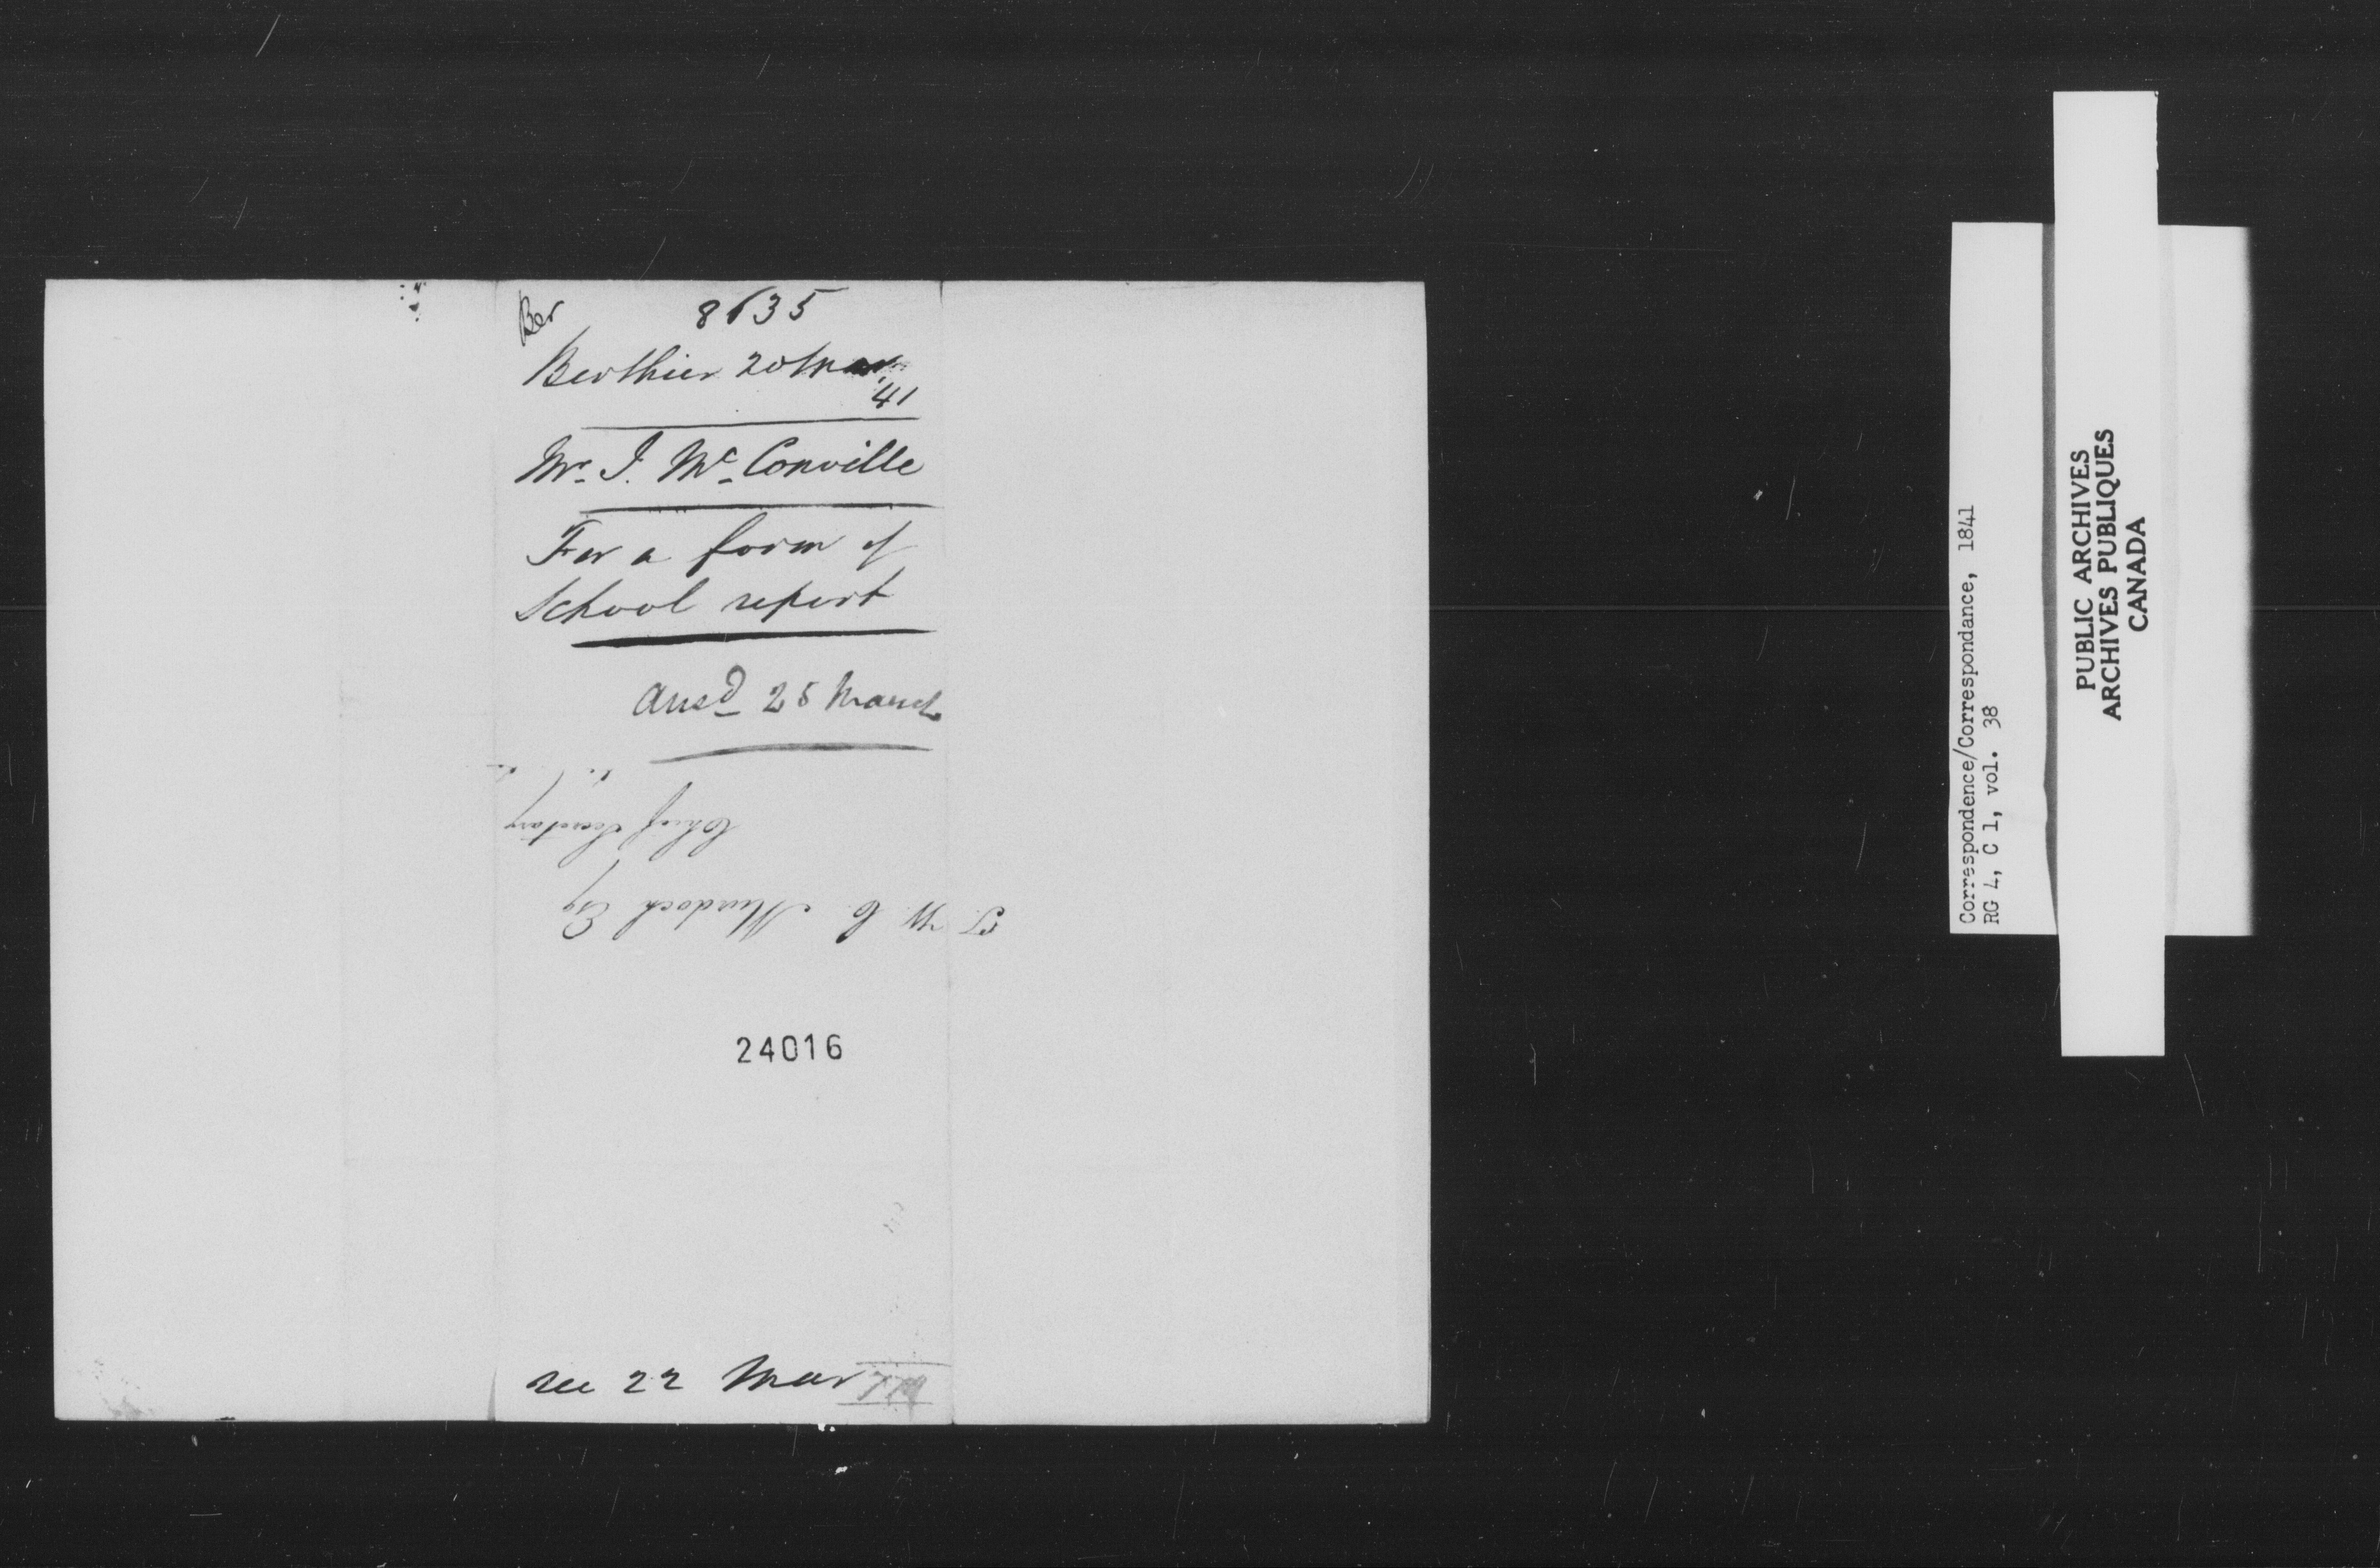 Ber
8635
Berthier 20 Mar
'41
Mr. J. Mc. Conville
For a form of
School report
Ansd 25 March
T. W. C. Murdoch Esq
Chief Secretary
24016
rec 22 Mar
Correspondence/Correspondance, 1841
RG 4, C 1, vol. 38
PUBLIC ARCHIVES
ARCHIVES PUBLIQUES
CANADA